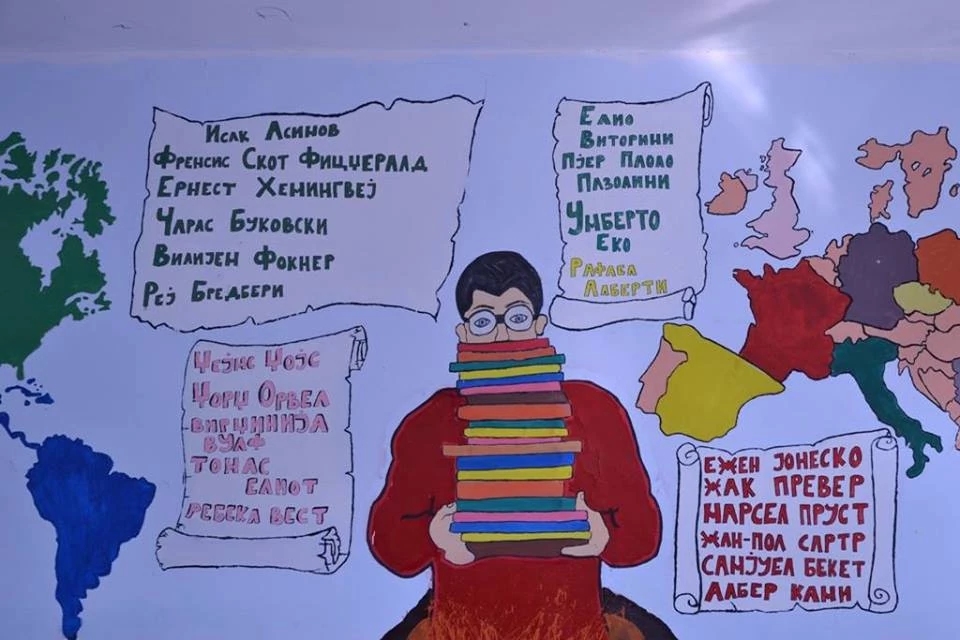 Исак Асимов
Френсис Скот Фицџералд
Ернест Хемингвеј
Чарлс Буковски
Вилијем Фокнер
Реј Бредбери
Елио
Виторини
Пјер Паоло
Пазолини
Умберто
Еко
Рафаел
Алберти
Џејмс Џојс
Џорџ Орвел
Вирџинија
Вулф
Томас
Елиот
Ребека Вест
ЕЖЕН ЈОНЕСКО
ЖАК ПРЕВЕР
МАРСЕЛ ПРУСТ
ЖАН-ПОЛ САРТР
САМЈУЕЛ БЕКЕТ
АЛБЕР КАМИ